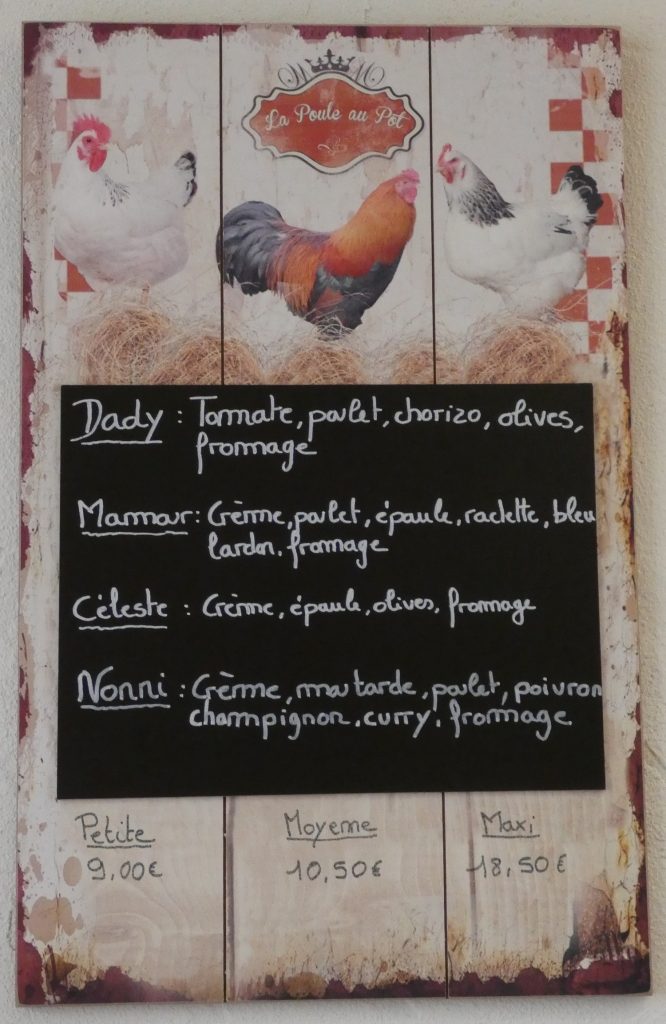 La Poule au Pot
Dady : Tommate, poulet, chorizo, olives,
fromage
Mamour : Crème, poulet, épaule, raclette, bleu
lardon, fromage
Céleste : Crème, épaule, olives, fromage
Nonni : Crème, moutarde, poulet, poivron
champignon, curry, fromage
Petite Moyenne Maxi
9,00€ 10,50€ 18,50€